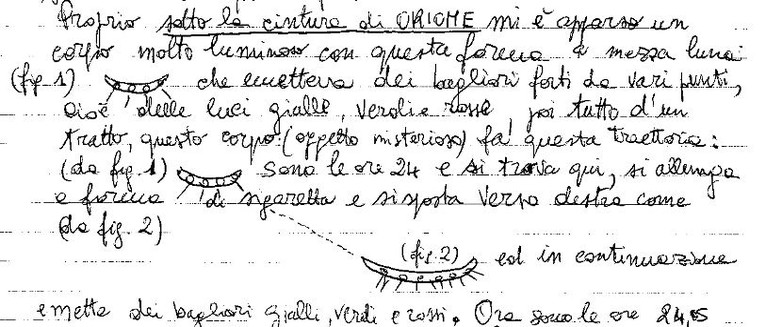 Proprio sotto la cintura di ORIONE mi è apparso un
corpo molto luminoso con questa forma a mezza luna:
(fig 1) che emetteva dei bagliori forti da vari punti,
cioè delle luci gialle, verdi e rosse, poi tutto d'un
tratto, questo corpo: (oggetto misterioso) fa' questa traettoria:
(da fig. 1) sono le ore 24 e si trova qui, si allunga
a forma di sigaretta e si sposta verso destra come
(da fig. 2)
(fig. 2) ed in continuazione
emette dei bagliori gialli, verdi e rossi. Ora sono le ore 24,05